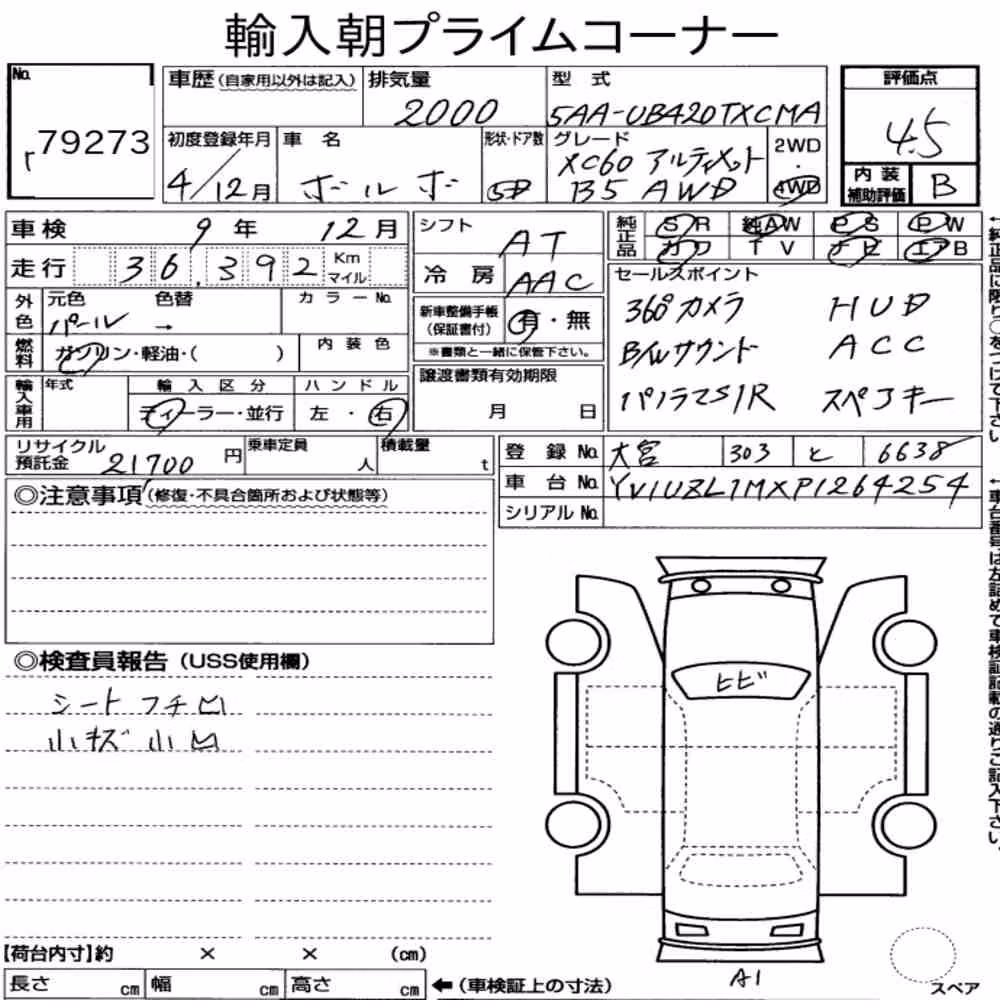 輸入朝プライムコーナー
No. 79273
車歴(自家用以外は記入)
排気量 2000
型式 5AA-UB420TXCMA
評価点 4.5
内装補助評価 B
初度登録年月 4/12月
車名 ボルボ
形状・ドア数 5D
グレード XC60 アルティメット B5 AWD
2WD・4WD
車検 9年 12月
走行 36,392 Km マイル
シフト AT
冷房 AAC
純正品 SR 純AW PS PW
カワ TV ナビ エアB
外色 元色 パール 色替 → カラーNo.
燃料 ガソリン・軽油・( )
内装色
新車整備手帳(保証書付) 有・無
※書類と一緒に保管下さい。
セールスポイント
360°カメラ HUD
B/Wサウンド ACC
パノラマS/R スペアキー
輸入車用 年式 輸入区分 ディーラー・並行 ハンドル 左・右
譲渡書類有効期限 月 日
リサイクル預託金 21700円
乗車定員 人
積載量 t
登録No. 大宮 303 と 6638
車台No. YV1UZL1MXP1264254
シリアルNo.
◎注意事項(修復・不具合箇所および状態等)
◎検査員報告(USS使用欄)
シート フチ凹
小キズ 小凹
ヒビ
A1
スペア
【荷台内寸】約 × × (cm)
長さ cm 幅 cm 高さ cm ←(車検証上の寸法)
←純正品に限り○をつけて下さい
←車台番号は左詰めて車検証記載の通りご記入下さい。